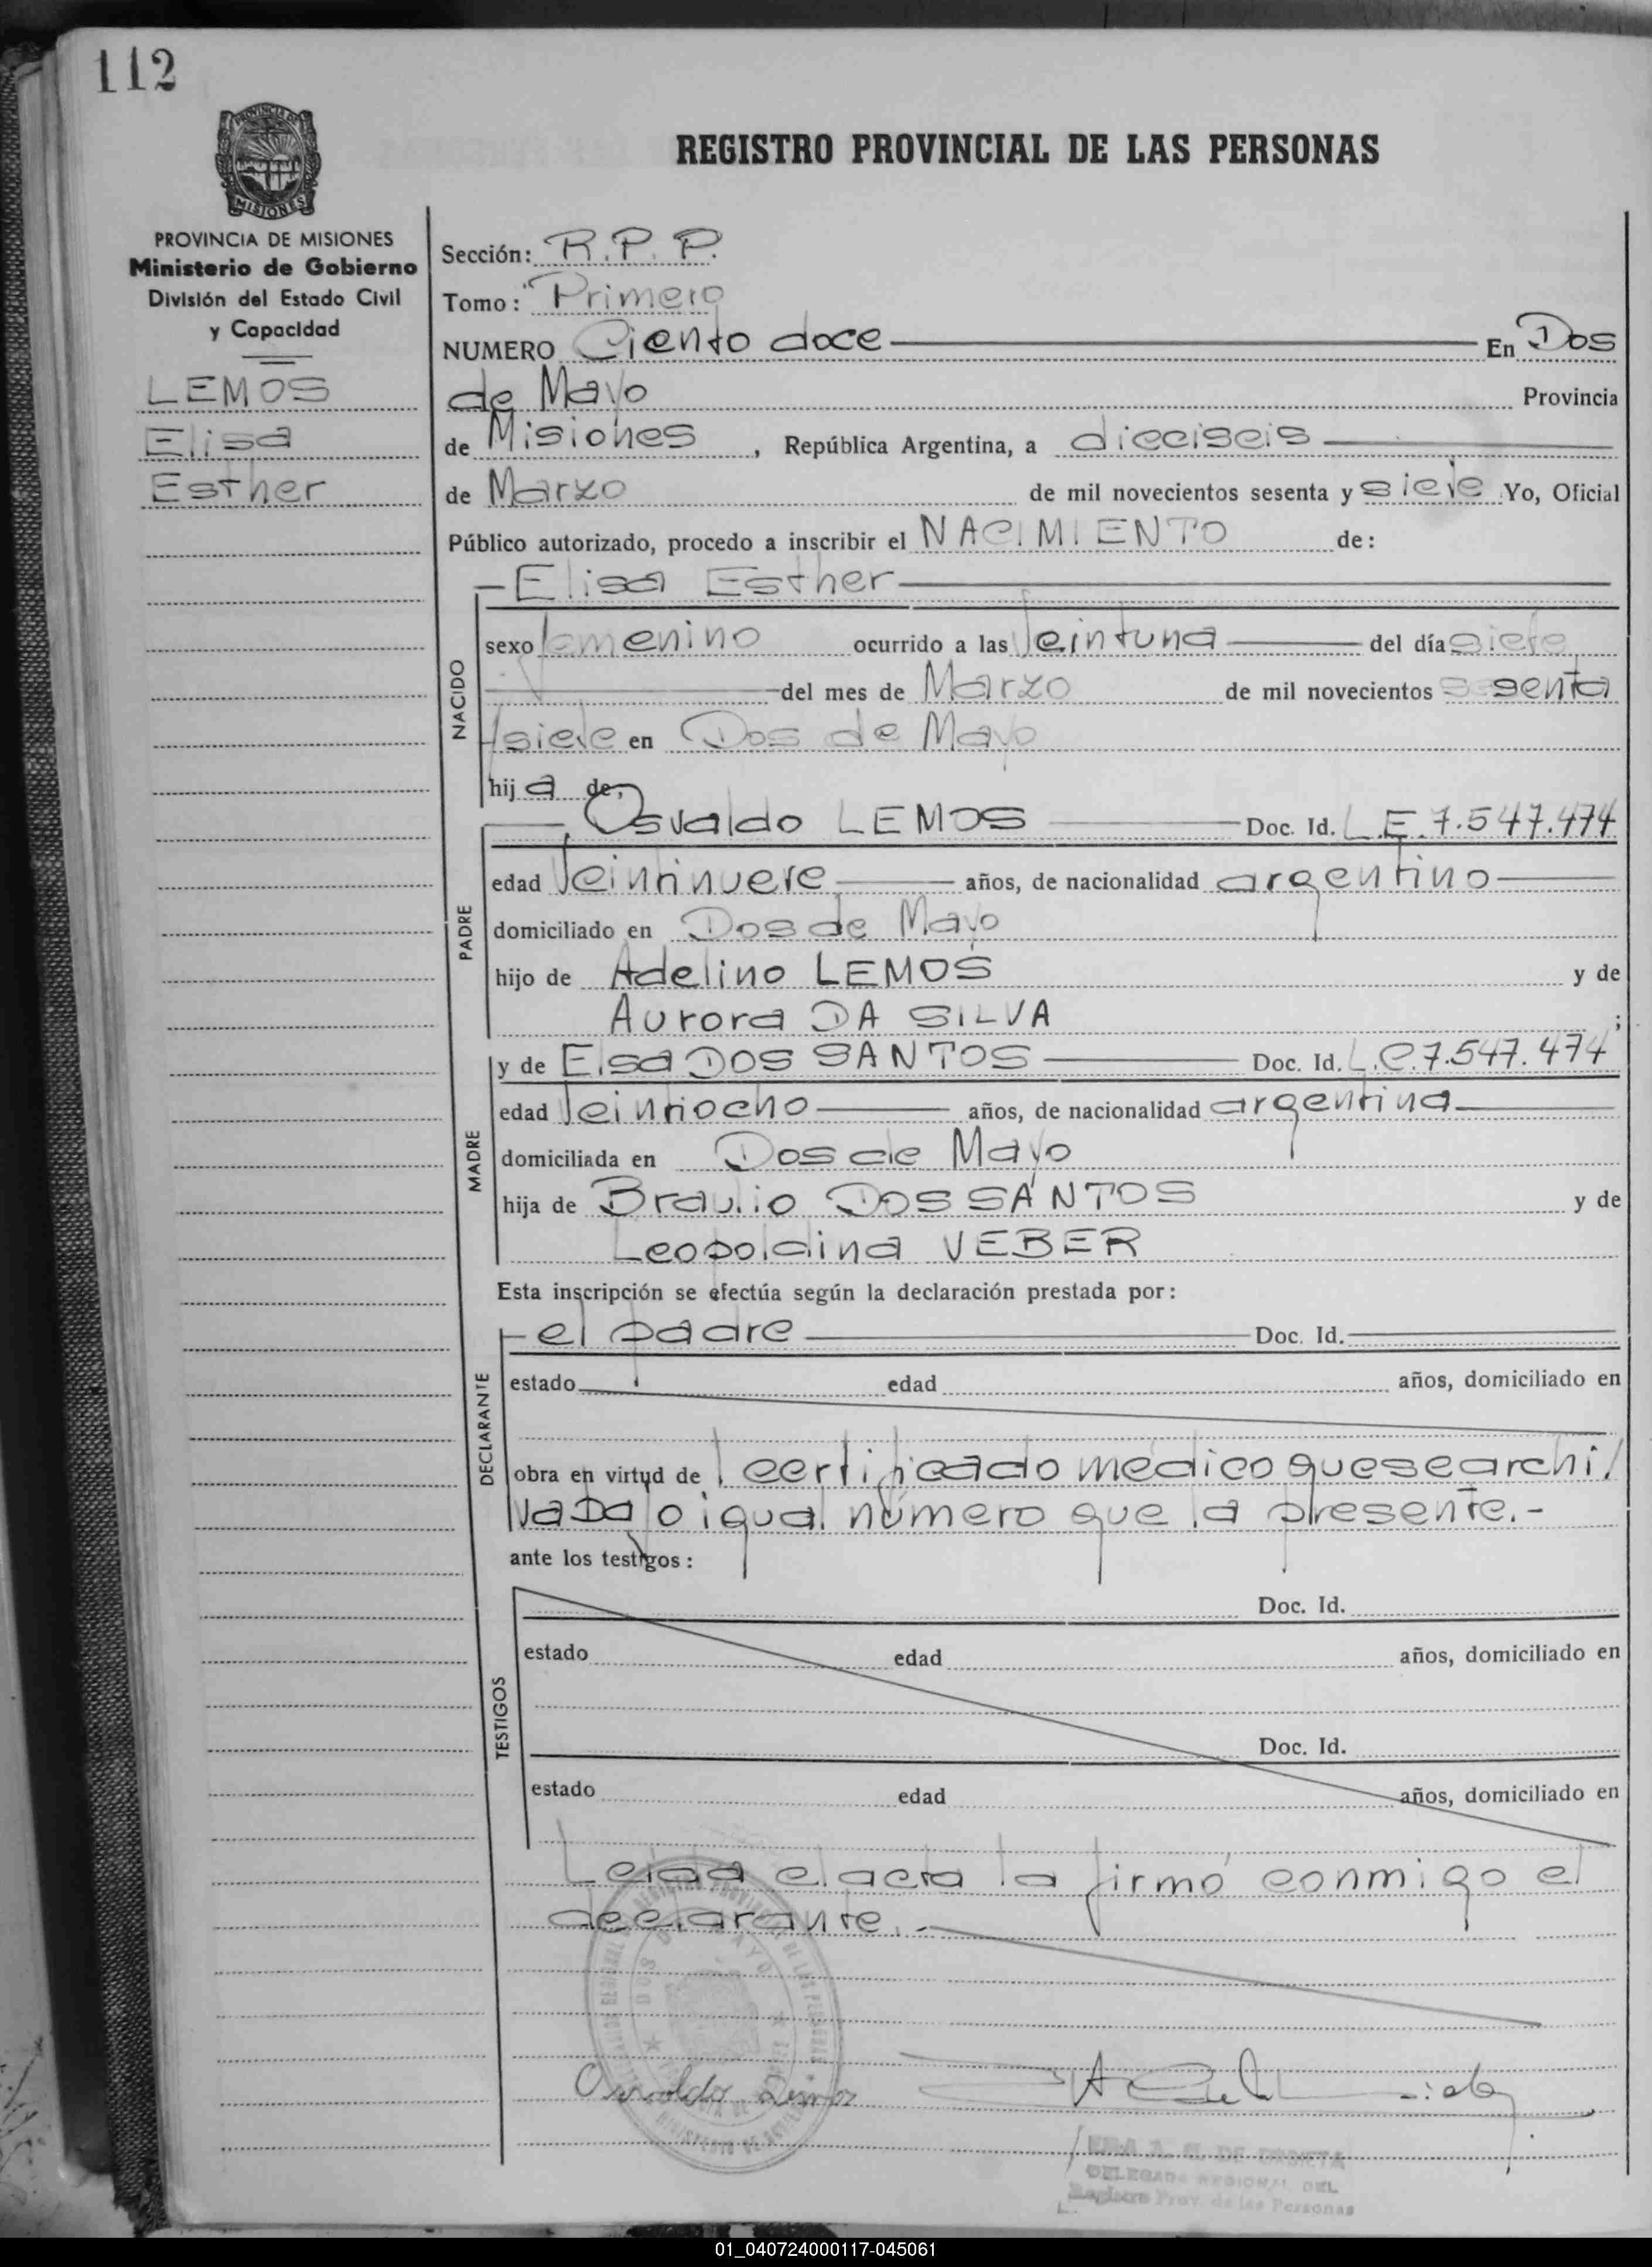 112
PROVINCIA DE
MISIONES
REGISTRO PROVINCIAL DE LAS PERSONAS
PROVINCIA DE MISIONES
Ministerio de Gobierno
División del Estado Civil
y Capacidad
LEMOS
Elisa
Esther
Sección: R.P.P.
Tomo: Primero
NUMERO Ciento doce En Dos
de Mayo Provincia
de Misiones, República Argentina, a dieciseis
de Marzo de mil novecientos sesenta y siete Yo, Oficial
Público autorizado, procedo a inscribir el NACIMIENTO de:
Elisa Esther
NACIDO
sexo femenino ocurrido a las Veintuna del día siete
del mes de Marzo de mil novecientos sesenta
y siete en Dos de Mayo
hija de,
PADRE
Osvaldo LEMOS Doc. Id. L.E. 7.547.474
edad Veintinueve años, de nacionalidad argentino
domiciliado en Dos de Mayo
hijo de Adelino LEMOS y de
Aurora DA SILVA ;
MADRE
y de Elsa DOS SANTOS Doc. Id. L.C. 7.547.474
edad Veintiocho años, de nacionalidad argentina
domiciliada en Dos de Mayo
hija de Braulio DOS SANTOS y de
Leopoldina VEBER
Esta inscripción se efectúa según la declaración prestada por:
DECLARANTE
el padre Doc. Id.
estado edad años, domiciliado en
obra en virtud de certificado médico que se archi/
va bajo igual número que la presente.-
ante los testigos:
TESTIGOS
Doc. Id.
estado edad años, domiciliado en
Doc. Id.
estado edad años, domiciliado en
Leída el acta la firmó conmigo el
declarante.-
DOS DE MAYO
Osvaldo Lemos
DELEGADA REGIONAL DEL
Registro Prov. de las Personas
01_040724000117-045061